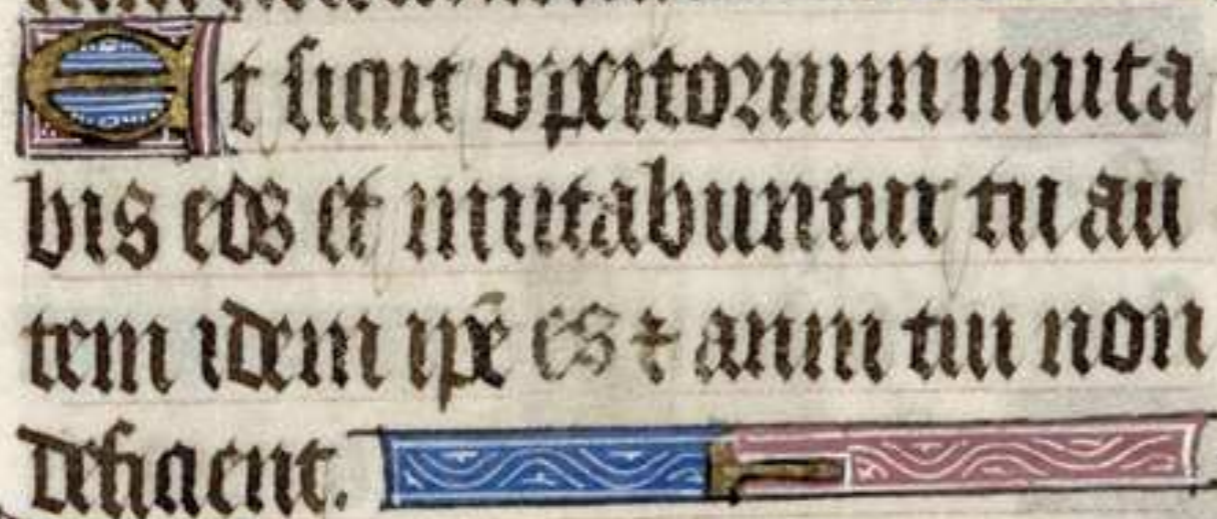 Et sicut opertorium muta
bis eos et mutabuntur tu au
tem idem ip̄e es ⁊ anni tui non
deficient.